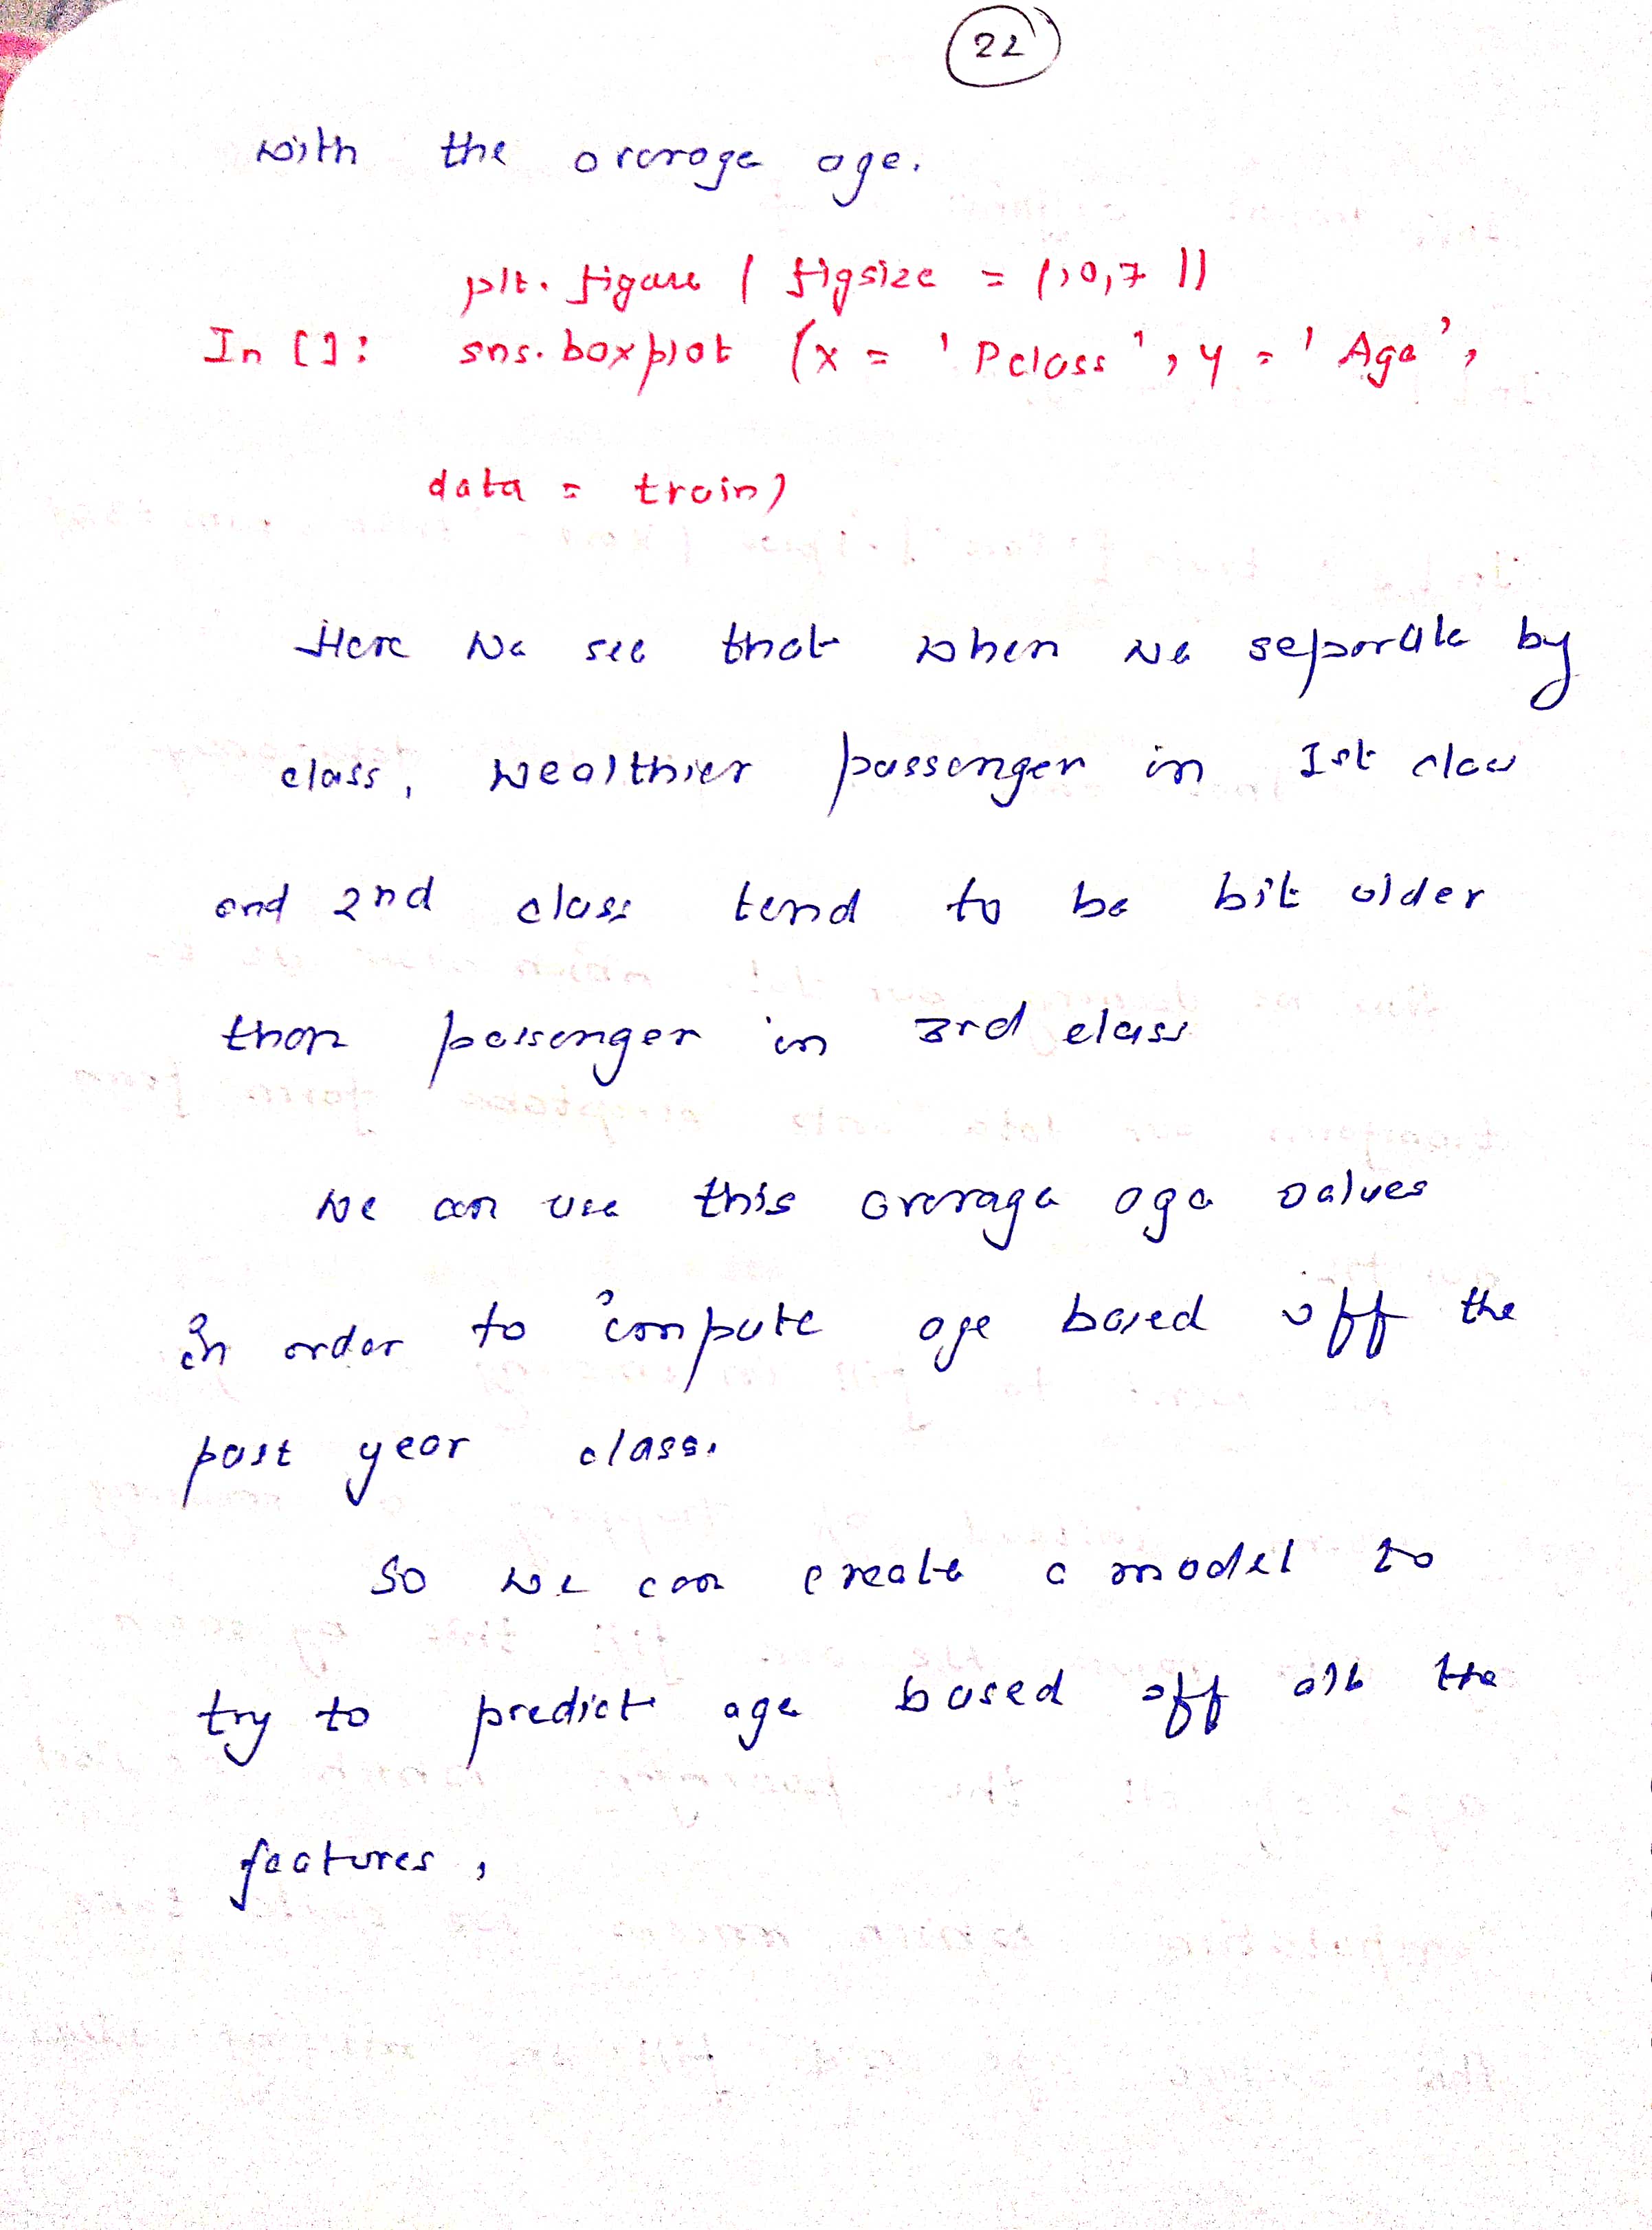 22
with the average age.
plt. figure ( figsize = (10,7 ))
In []: sns. boxplot (x = 'Pclass', y = 'Age',
data = train)
Here we see that when we separate by
class, wealthier passenger in 1st class
and 2nd class tend to be bit older
than passenger in 3rd class
we can use this average age values
in order to impute age based off the
past year class.
So we can create a model to
try to predict age based off all the
features,